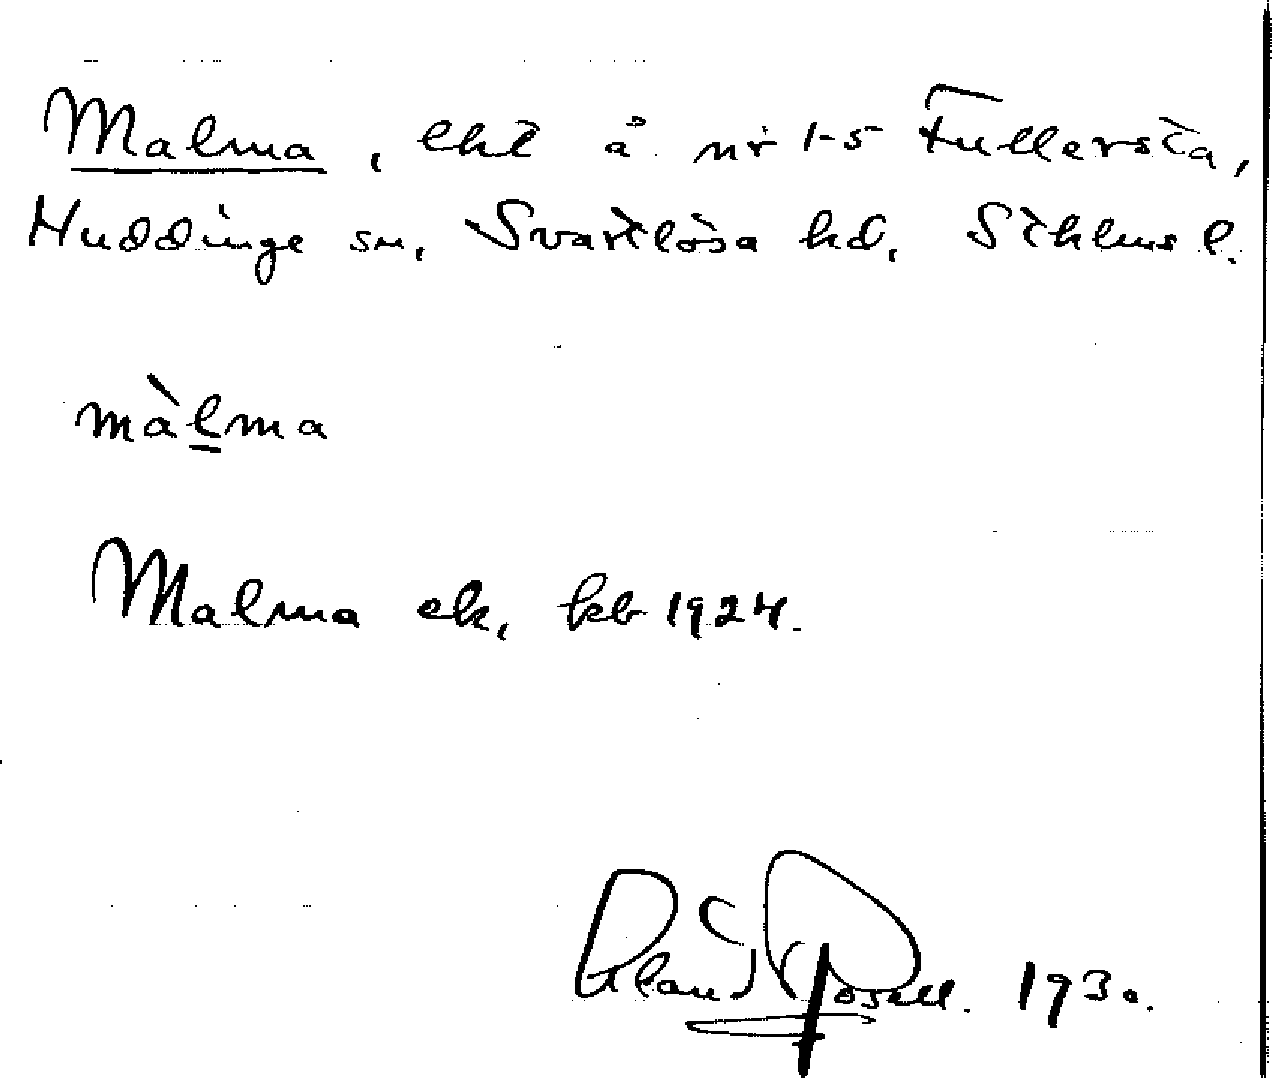 Malma, lht å nr 1-5 Fullersta,
Huddinge sn, Svartlösa hd, Sthlms l.
màlma
Malma ek, kb 1924.
1930.